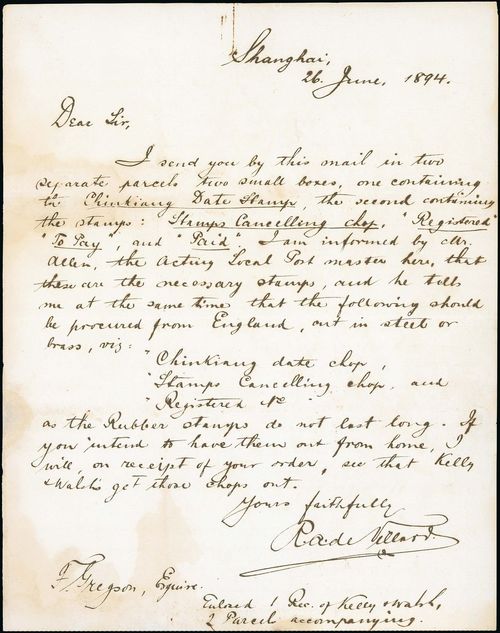 Shanghai,
26 June, 1894.
Dear Sir,
I send you by this mail in two
separate parcels two small boxes, one containing
Chinkiang Date Stamp, the second containing
the stamps: Stamps Cancelling chop, "Registered"
"To Pay", and "Paid. I am informed by Mr.
Allen, the Acting Local Post master here, that
these are the necessary stamps, and he tells
me at the same time that the following should
be procured from England, cut in steel or
brass, viz:
"Chinkiang date chop,
"Stamps Cancelling chop and
"Registered No
as the Rubber stamps do not last long. If
you intend to have them out from home, I
will, on receipt of your order, see that Kelly
& Walsh get those chops out.
Yours faithfully
R.A. de Villard.
F. Gregson, Esquire.
Enlosed 1 Rec. of Kelly & Walsh,
2 Parcel accompanying.